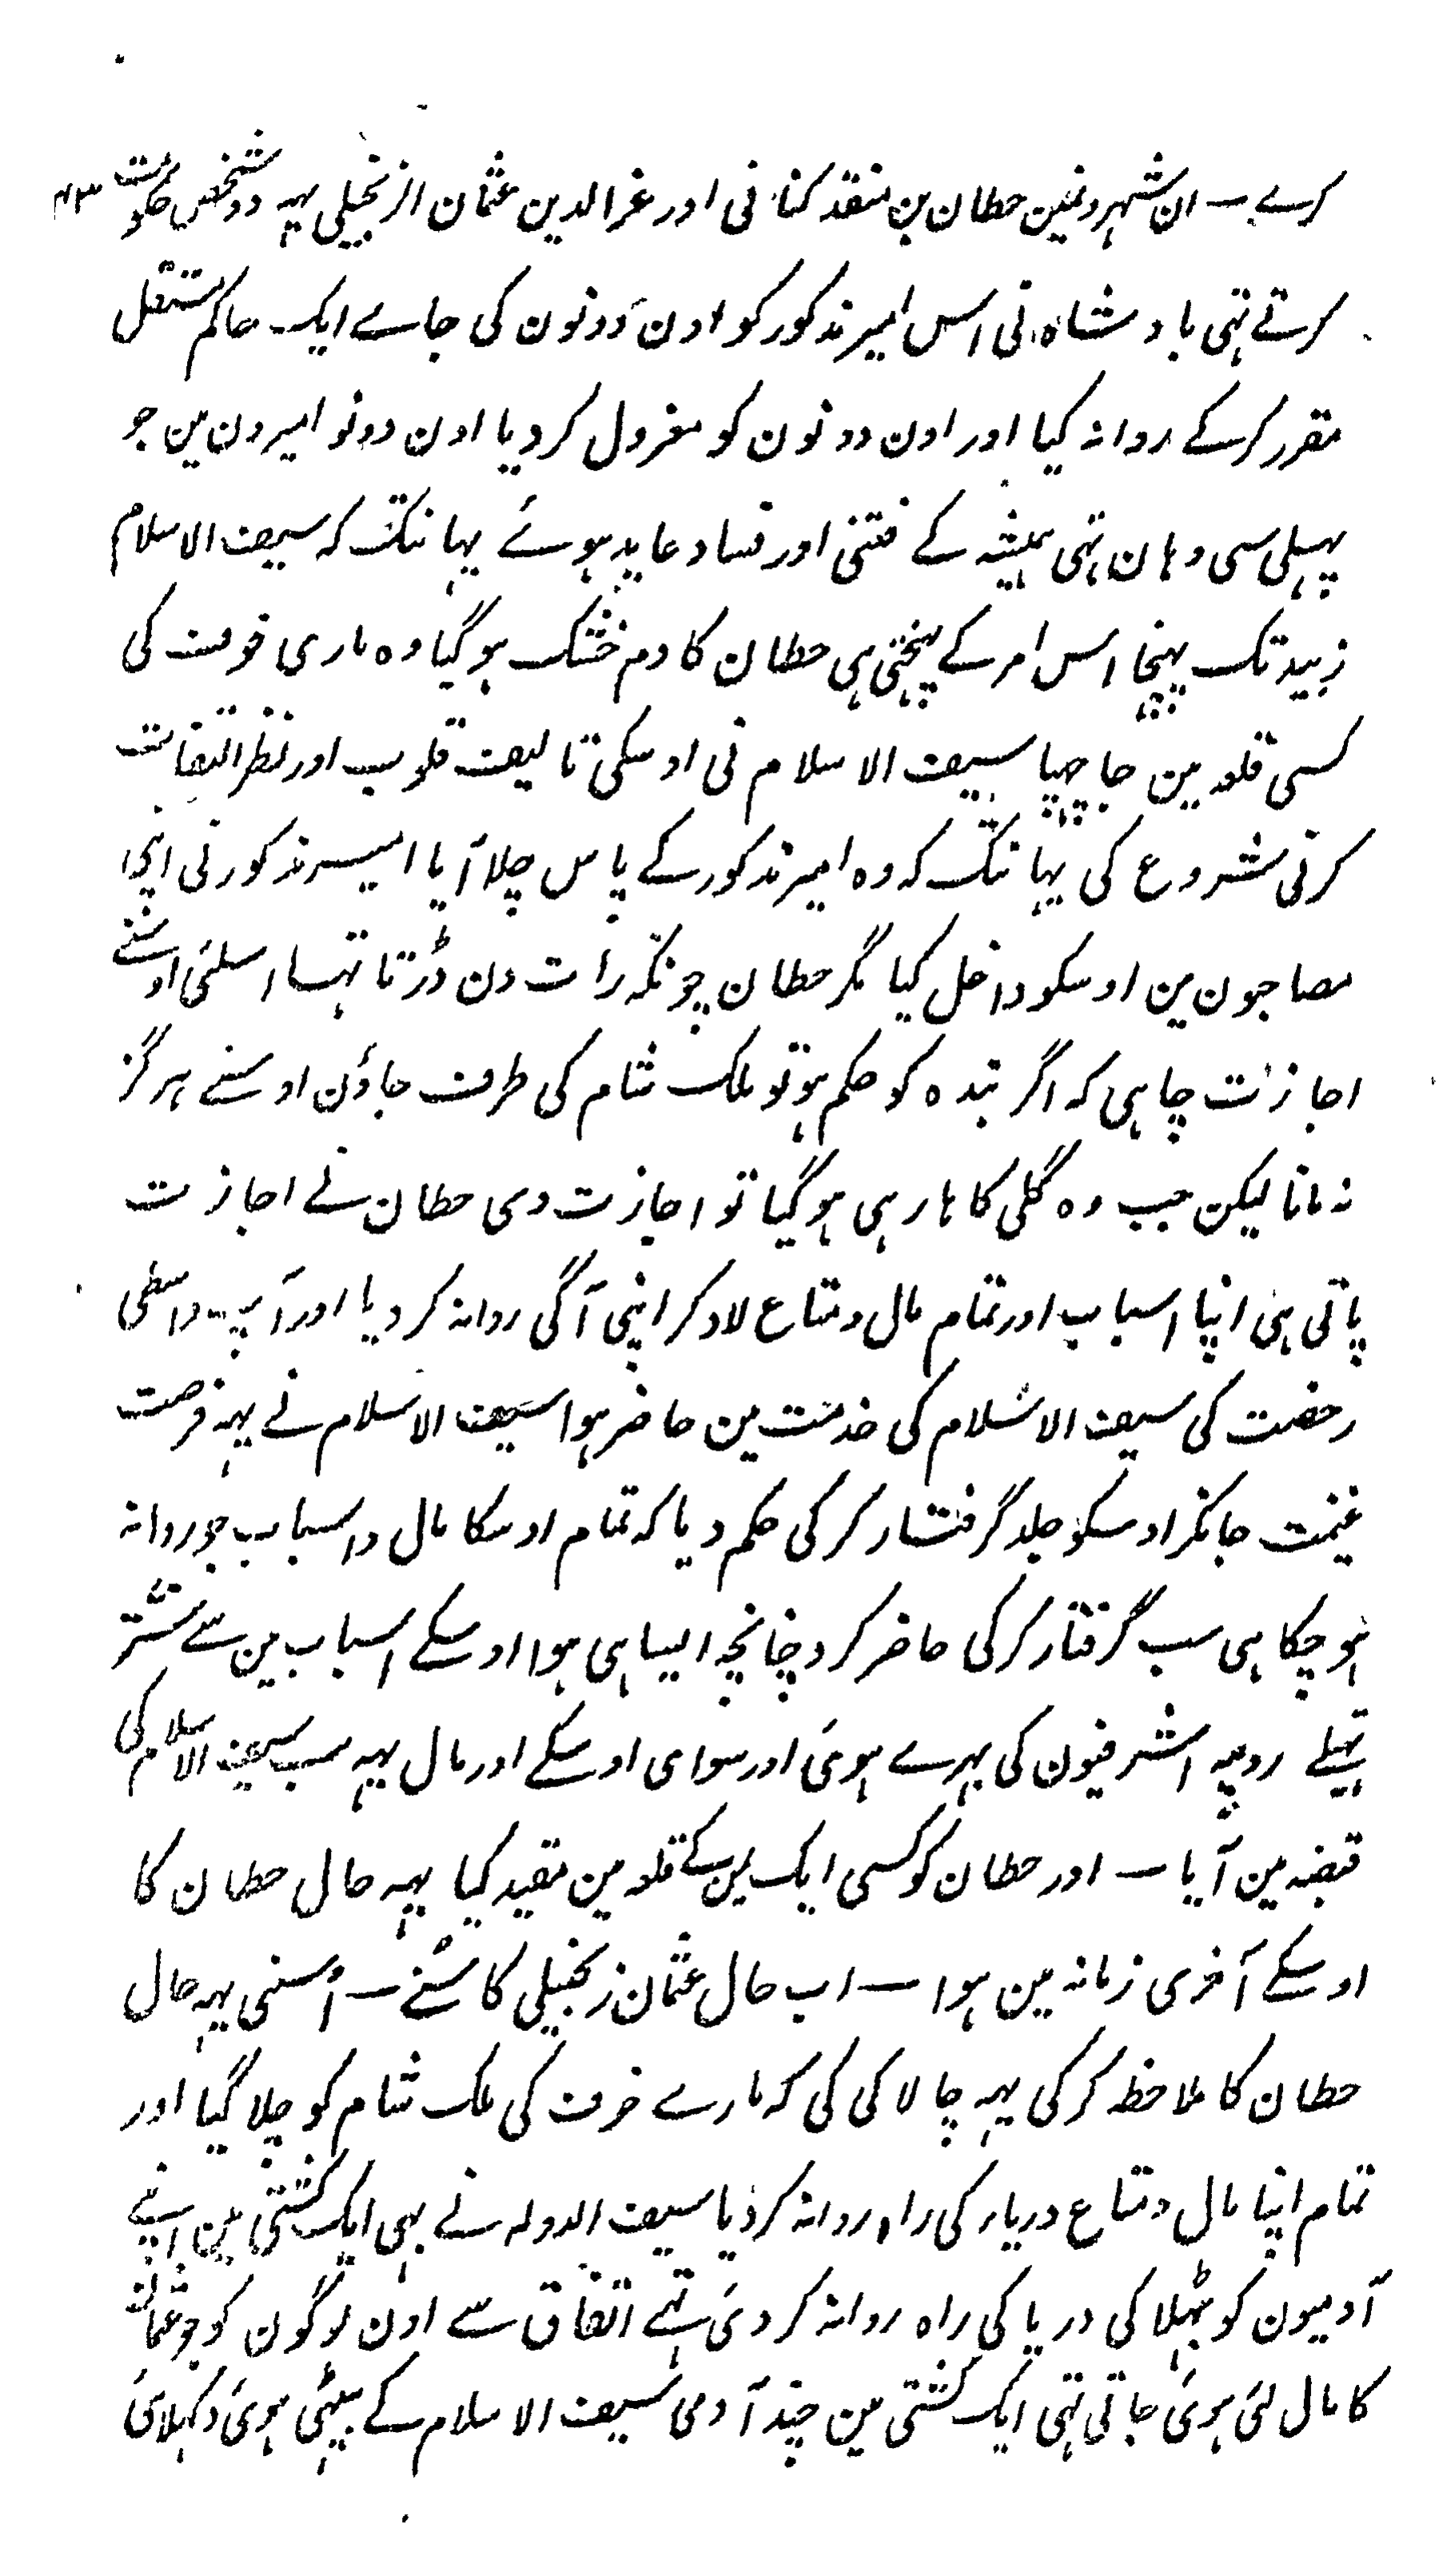 کرے ـــ ان شہرونمین حطان بن منقذ کنانی اور عزالدین عثمان الزنجیلی یہہ دو شخص حکومت
کرتے تہی بادشاہ نی اس امیر مذکور کو اون دونون کی جاے ایک حاکم مستقل
مقرر کرکے روانہ کیا اور اون دونون کو معزول کردیا اون دونو امیرون مین جو
پہلی سی وہان تہی ہمیشہ کے فتنی اور فساد عاید ہوئے یہانتک کہ سیف الاسلام
زبید تک پہنچا اس امر کے پہنچتی ہی حطان کا دم خشک ہو گیا وہ ماری خوف کی
کسی قلعہ مین جا چھپا سیف الاسلام نی اوسکی تالیف قلوب اور نظر التفات
کرنی شروع کی یہانتک کہ وہ امیر مذکور کے پاس چلا آیا امیر مذکور نی اپنی
مصاحبون مین اوسکو داخل کیا مگر حطان چونکہ رات دن ڈرتا تہا اسلئی اوسنے
اجازت چاہی کہ اگر بندہ کو حکم ہو تو ملک شام کی طرف جاؤن اوسنے ہرگز
نہ مانا لیکن جب وہ گلی کا ہار ہی ہو گیا تو اجازت دی حطان نے اجازت
پاتی ہی اپنا اسباب اور تمام مال و متاع لادکر اپنی آگی روانہ کردیا اور آپ واسطی
رخصت کی سیف الاسلام کی خدمت مین حاضر ہوا سیف الاسلام نے یہہ فرصت
غنیمت جانکر اوسکو جلد گرفتار کرکی حکم دیا کہ تمام اوسکا مال و اسباب جو روانہ
ہو چکا ہی سب گرفتار کرکی حاضر کرو چنانچہ ایسا ہی ہوا اوسکے اسباب مین سے ستر
تہیلے روپیہ اشرفیون کی بہرے ہوئی اور سوای اوسکے اور مال یہہ سب سیف الاسلام کی
قبضہ مین آیا ـــ اور حطان کو کسی ایک یمن کے قلعہ مین مقید کیا یہہ حال حطان کا
اوسکے آخری زمانہ مین ہوا ـــ اب حال عثمان زنجیلی کا سنئے ـــ اُسنی یہہ حال
حطان کا ملاحظہ کرکی یہہ چالاکی کی کہ مارے خوف کی ملک شام کو چلا گیا اور
تمام اپنا مال و متاع دریار کی راہ روانہ کردیا سیف الدولہ نے بہی ایک کشتی مین اپنے
آدمیون کو بٹہلا کی دریا کی راہ روانہ کردئی تہے اتفاق سے اون لوگون کو جو عثمان
کا مال لئی ہوئی جاتی تہی ایک کشتی مین چند آدمی سیف الاسلام کے بیٹہی ہوئی دکہلائی